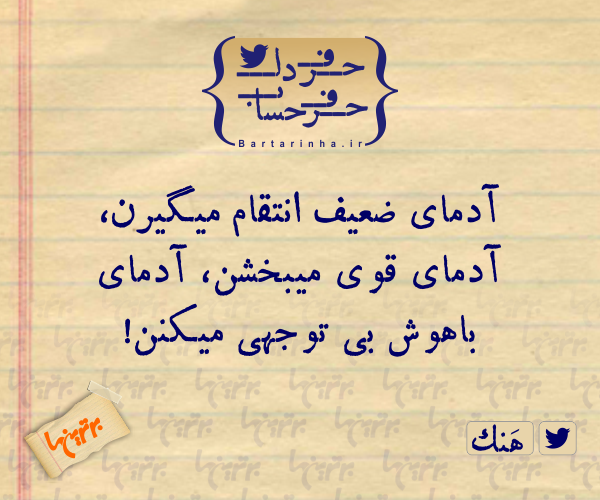 حرف دل
حرف حساب
Bartarinha.ir
آدمای ضعیف انتقام میگیرن،
آدمای قوی میبخشن، آدمای
باهوش بی توجهی میکنن!
برترینها
هَنك